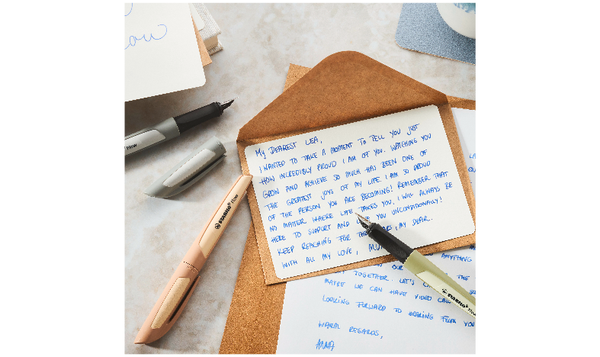 My DEAREST LEA,
I WANTED TO TAKE A MOMENT TO TELL YOU JUST
HOW INCREDIBLY PROUD I AM OF YOU. WATCHING YOU
GROW AND ACHIEVE SO MUCH HAS BEEN ONE OF
THE GREATEST JOYS OF MY LIFE. I AM SO PROUD
OF THE PERSON YOU ARE BECOMING! REMEMBER THAT
NO MATTER WHERE LIFE TAKES YOU, I WILL ALWAYS BE
HERE TO SUPPORT AND YOU UNCONDITIONALLY!
KEEP REACHING FOR THE MY DEAR.
WITH ALL MY LOVE,
ANYTHING
OUR THE
TOGETHER. LET'S
MAYBE WE CAN HAVE VIDEO CALL
LOOKING FORWARD TO HEARING FROM YOU
WARM REGARDS,
ANNA
STABILO
STABILO